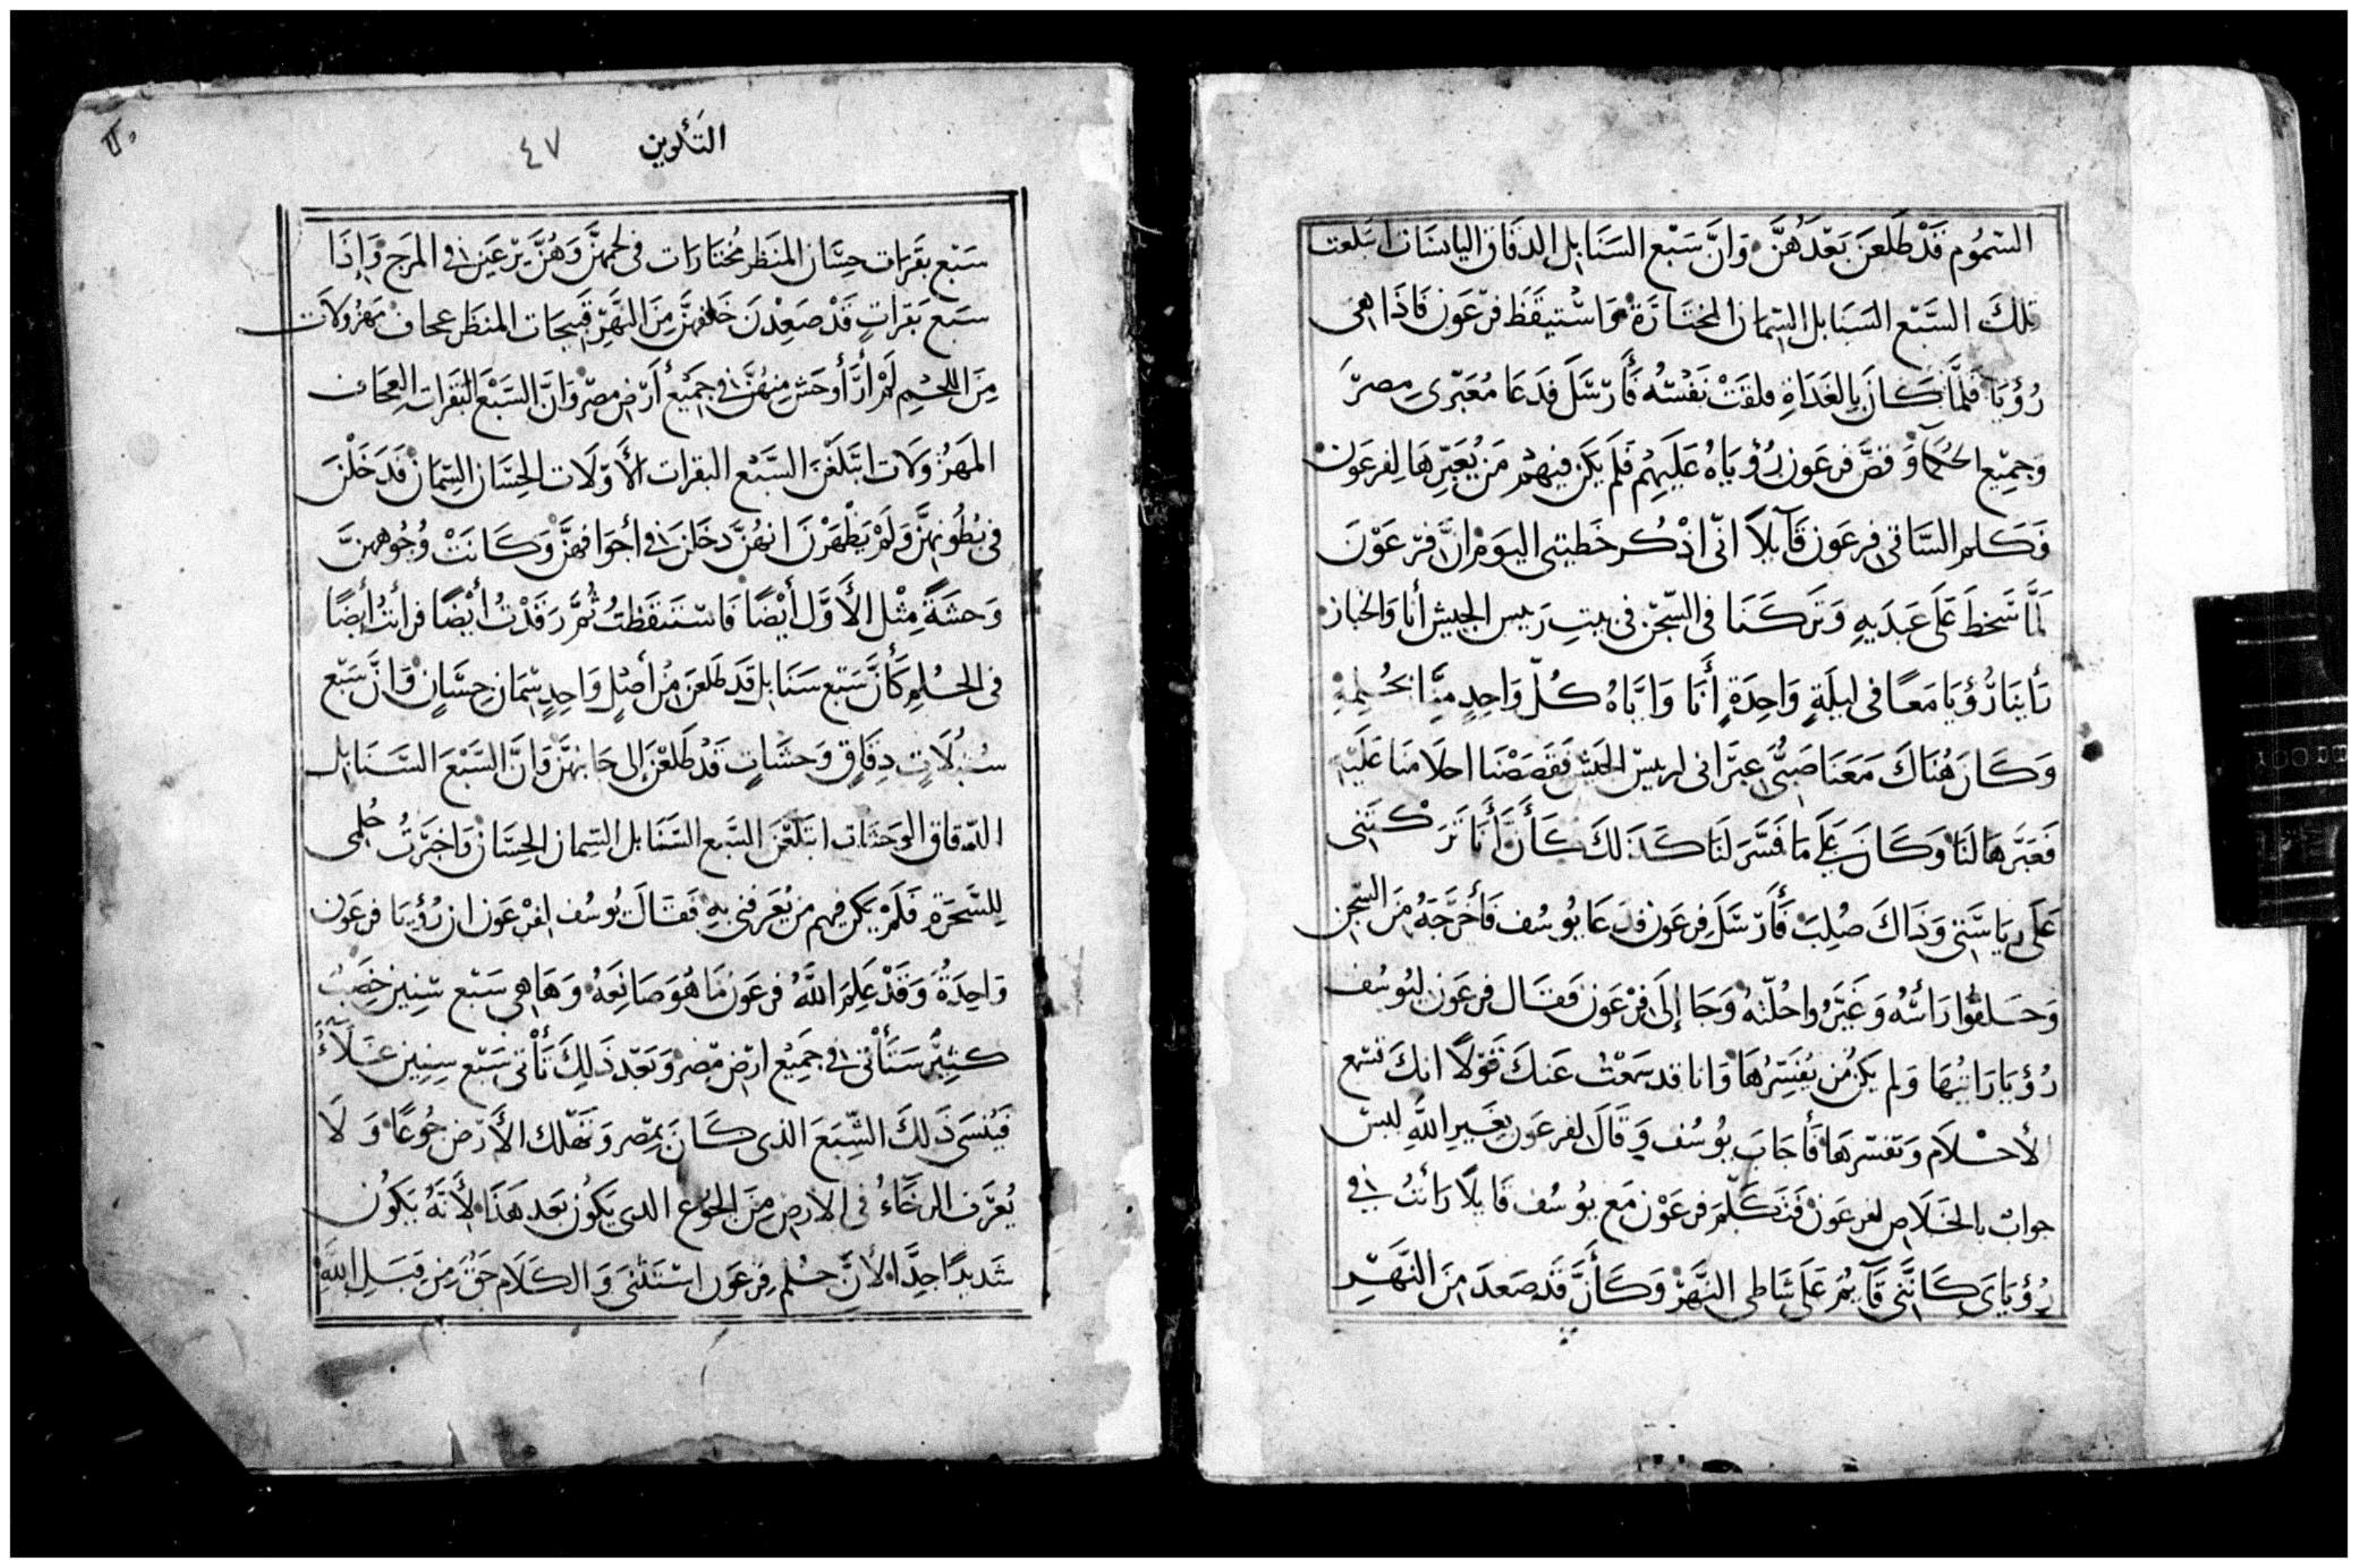 السَّمُوم قَدْ طَلَعنَ بَعْدَهُنَّ وَانَّ سَبْع السَنَابِل الدقَاق اليابسَات ابتَلعت
تلكَ السَّبْع السَنَابل السِّمان المختَارَة وَاسْتيقَظَ فرْعَون فَاذَا هى
رُؤيَا فَلَمَّا كَانَ بِالغَدَاةِ قلقَتْ نَفْسُه فَأَرْسَلَ فدَعَا مُعَبّرى مِصرَ
وَجمِيْع الحُكَمآ وَ قصَّ فرعَون رُؤيَاهُ عَلَيهِم فَلَم يَكن فيهم مَن يُعَبِّرهَا لِفرعَون
فَكَلم السَّاقى فِرعَون قَآيلاً انّى اذْكُر خَطيتى اليَوم انَّ فرْعَوْن
لَمَّا سَخط عَلَى عَبدَيهِ وَتَركَنَا فى السّجْن فى بيتِ رَييس الجيش أنا وَالخباز
رَأينَا رُؤيَا مَعًا فى ليلَةٍ وَاحِدَةٍ أَنَا وَايَّاهُ كُلّ وَاحِدٍ مِنَّا بحُلمِهِ
وَكَانَ هُنَاكَ مَعَنَا صَبىّ عبرَانى لرييس الجَيش فَقَصَصْنَا احلامَنَا عَلَيْهِ
فَعَبَّرهَا لنَا وَكَانَ عَلَى مَا فَسَّرَ لَنَا كَذَلكَ كَأَنَّ أَنَا تَرَكتَنى
عَلَى رِيَاسَتى وَذَاكَ صُلِبَ فَأَرْسَلَ فِرعَون فدَعَا يُوسُف فَأَخرَجَهُ مِنَ السّجن
وَحَلقُوا رَأسُه وَغَيَّرُوا حُلّتهُ وَجَا إلَى فرْعَون فَقَال فِرعَون ليُوسُف
رُؤيَا رَايتُهَا وَلم يَكن مَن يُفَسِّرُهَا وَانا قد سَمعْتُ عَنكَ قَوْلاً انكَ تسمع
الأحْلَام وَتفسّرهَا فَأجَابَ يُوسُف وَقَالَ لفرعَون بِغَيرِ اللّه ليسَ
جوابٌ بالخَلَاص لفرعَون فَتَكَلَّمَ فرعَوْن مَع يُوسُف قَايلًا رَأتُ فى
رُؤيَاىَ كَانَّنى قَآيمُ عَلَى شَاطى النَّهَرْ وَكَأَنَّ قَد صَعدَ مِنَ النَّهَرِ
التَكوين ٤٧
سَبْع بقَرَات حِسَان المَنظر مُختَارَات فى لحمهنَّ وَهُنَّ يَرْعَينَ فى المَرج وَإذَا
سَبعَ بَقرَاتٍ قَدْ صَعِدْنَ خَلفهنَّ مِنَ النَّهَرِ قَبيحَات المنظَر عجاف مَهزولَات
مِنَ اللحْمِ لَمْ أرَ أوحَش مِنهُنَّ فى جَمِيْع أرْض مصْر وَانَّ السَّبْعَ البَقرَات العجَاف
المَهزُولَات ابتَلَعْنَ السَّبع البقرَات الأَوّلَات الحِسَان السِّمَان فَدَخَلْنَ
فى بُطُونهنَّ وَلَمْ يَظْهَرْنَ انهُنَّ دخَلنَ فى أجوَافهنَّ وَكَانَتْ وُجُوههنَّ
وَحشَةً مِثْل الأَوَّل أيْضًا فَاسْتَيقَظتُ ثُمَّ رَقَدْتُ أيْضًا فرأتُ أيضًا
فى الحلمِ كَأَنَّ سَبَع سَنَابل قَد طَلعنَ مِنْ أصْلٍ وَاحِدٍ سِّمَان حِسَانٍ وَانَّ سَبْع
سُنْبُلَاتٍ دِقَاقٍ وَحشَاتٍ قَدْ طَلَعْنَ إلى جَانبهنَّ وَانَّ السَّبْعَ السَّنَابل
الدّقاق الوَحشات ابتَلَعْنَ السَّبع السَّنَابل السِّمان الحِسَان وَاخبَرتُ حُلمى
لِلسَّحَرَةِ فَلَمْ يَكن فيهم من يُعَرفنى بِهِ فَقَالَ يُوسُف لفرْعَون ان رُؤيَا فرعَون
وَاحِدَةُ وَقَدْ عَلِمَ اللَّهُ فرعَون مَا هُوَ صَانِعَهُ وَهَا هى سَبْع سنِين خَصِبُ
كثِيْر سَتَأتى فى جَمِيْع ارْض مِصْر وَبَعْد ذَلِكَ تَأْتى سَبْع سِنِين غَلآءُ
فَيُنسَى ذَلكَ الشِّبَعَ الذى كَانَ بمِصْر وَتَهْلك الأَرْض جُوعًا وَلَا
يُعْرَف الرخَاءُ فى الارض مِنَ الجُوع الدى يَكون بَعد هَذَا لأَنَهُ يَكوُن
شَديدًا جِدًّا لأنَّ حُلم فِرْعَون اسْتَثنىَ وَالكَلَام حَقُّ مِن قِبَلِ اللَّهِ